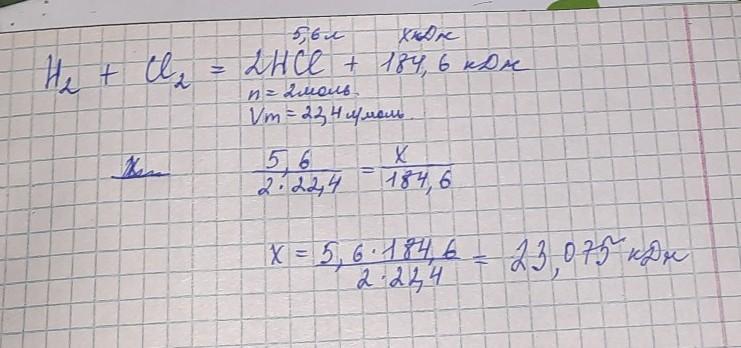 5,6 л   x кДж
H₂ + Cl₂ = 2HCl + 184,6 кДж
n = 2 моль
Vm = 22,4 л/моль
5,6 / 2·22,4 = x / 184,6
x = 5,6·184,6 / 2·22,4 = 23,075 кДж